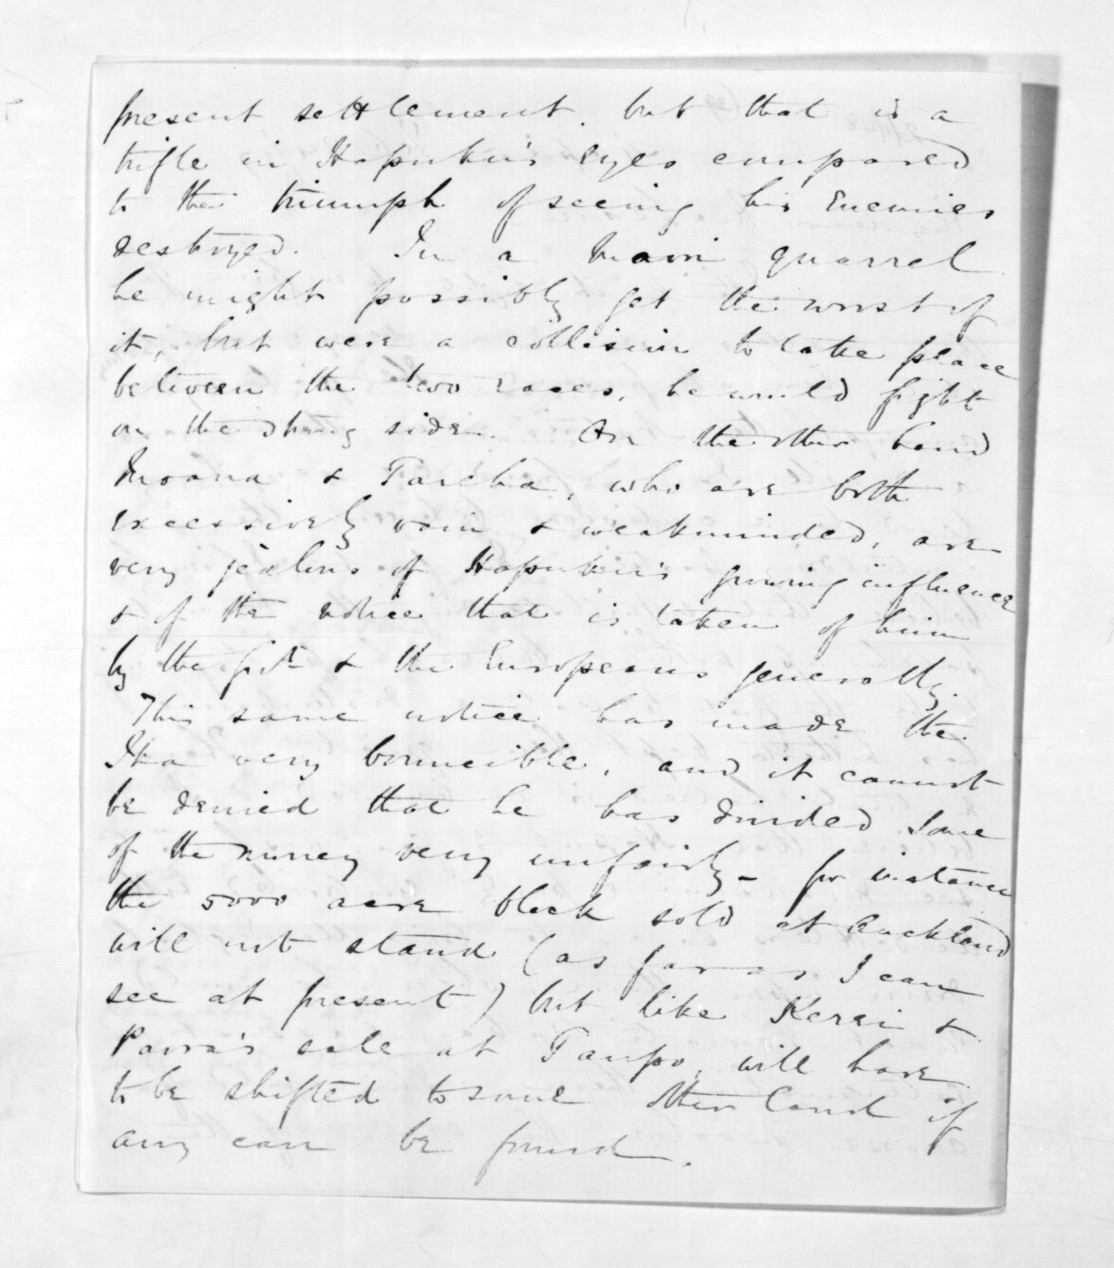 present settlement, but that is a
trifle in Hapuku's eyes compared
to the triumph of seeing his Enemies
destroyed. In a Maori quarrel
he might possibly get the worst of
it, but were a collision to take place
between the two races, he would fight
on the strong side. On the other hand
Moana & Tareha, who are both
excessively vain & weakminded, are
very jealous of Hapuku's growing influence
& of the notice that is taken of him
by the Govt & the Europeans generally.
This same notice has made the
very and it cannot
be denied that he has divided some
of the money very unfairly - for instance
the 5000 acre block sold at Auckland
will not stand (as far as I can
see at present) but like Kerei &
sale at Taupo, will have
to be shifted to some other land if
any can be found.